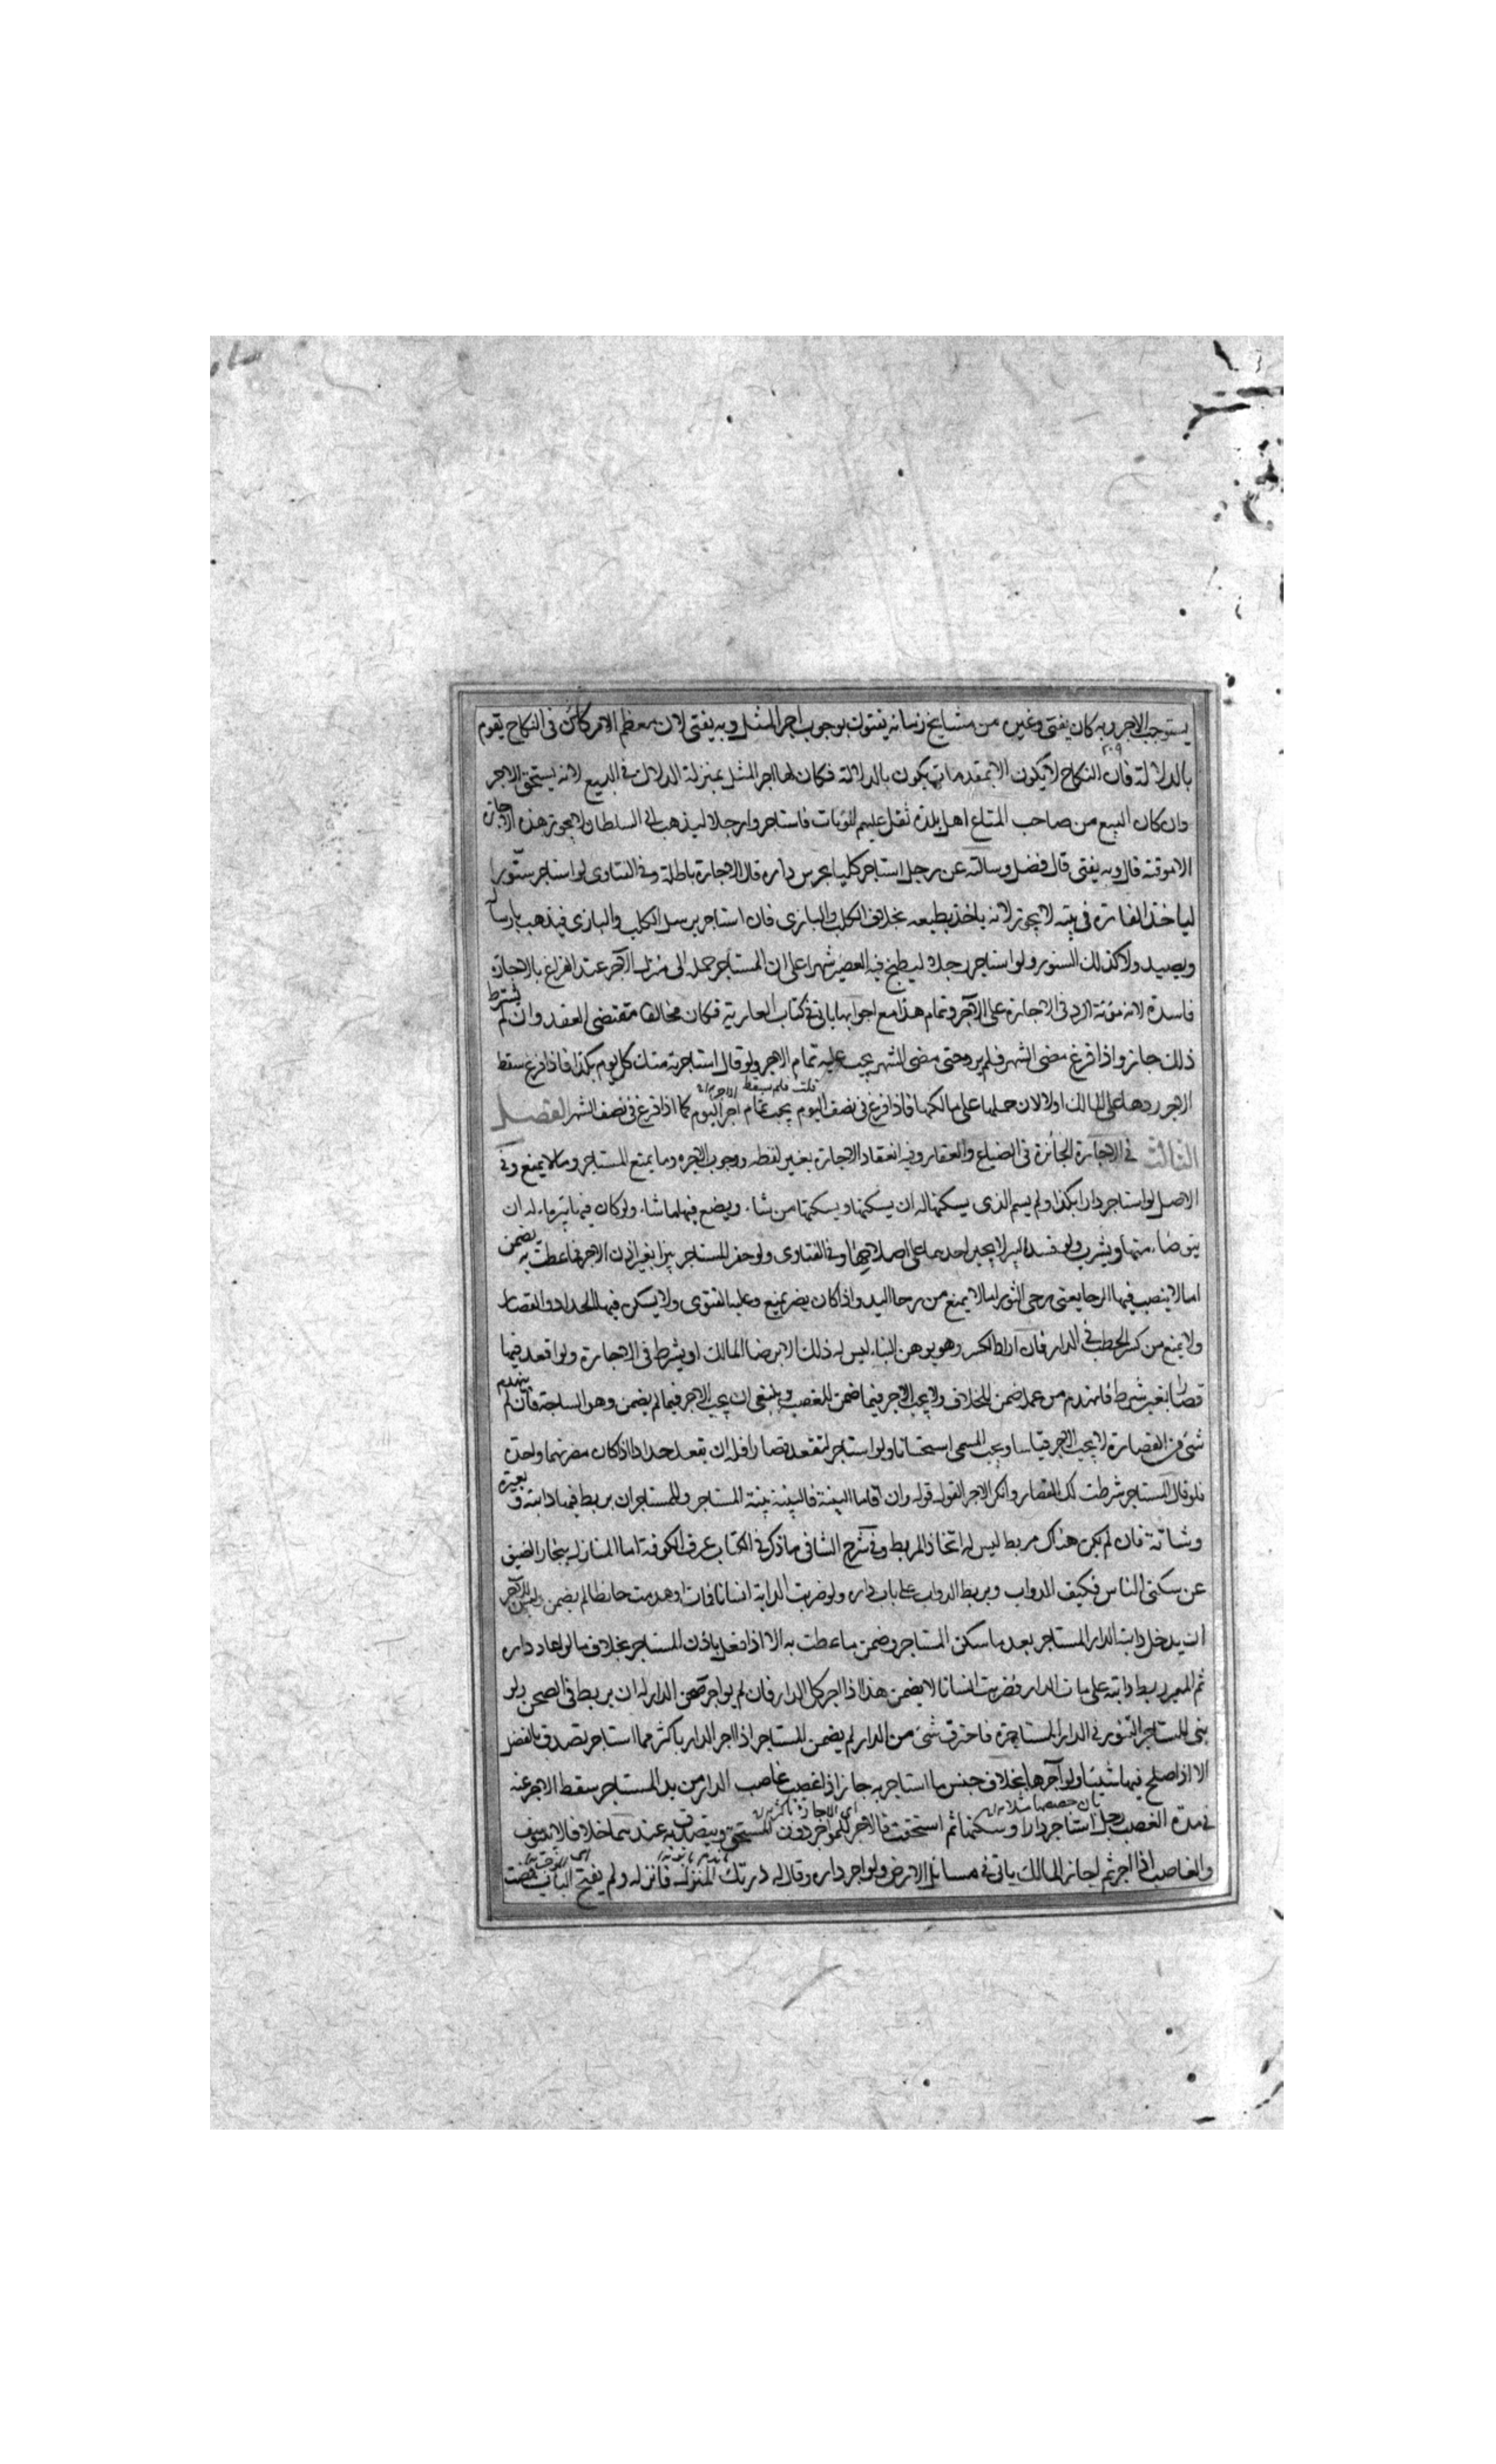 يستوجب الاجر وبه كان يفتى وغيره من مشايخ زمانه يفتون بوجوب اجر المثل وبه يفتى لان معظم الامر كائن فى النكاح يقوم
بالدلالة فان النكاح لا يكون الا بمقدمات يكون بالدلالة فكان لها اجر المثل بمنزلة الدلال فى البيع لانه يستحق الاجر
وان كان البيع من صاحب المتاع اهل بلدة ثقل عليهم المؤنات فاستاجروا رجلا ليذهب الى السلطان لا يجوز هذه الاجارة
الا موقتة قال وبه يفتى قال فضل وسالته عن رجل استاجر كلبا يحرس داره قال الاجارة باطلة وفى الفتاوى لو استاجر سنورا
لياخذ الفارة فى بيته لا يجوز لانه ياخذ بطبعه بخلاف الكلب والبازى فان استاجر يرسل الكلب والبازى فيذهب بارساله
ويصيد ولا كذلك السنور ولو استاجر رجلا ليطبخ فيه العصير شهرا على ان المستاجر حمله الى منزل الآجر عند الفراغ بالاجارة
فاسدة لانه مؤنة الرد فى الاجارة على الآجر وتمام هذا مع اجوابها ياتى فى كتاب العارية فكان مخالفا مقتضى العقد وان لم يشترط
ذلك جاز واذا فرغ مضى الشهر فلم يرد حتى مضى الشهر يجب عليه تمام الاجر ولو قال استاجرته منك كل يوم بكذا فاذا فرغ سقط
الاجر ردها على المالك اولا لان حملها على مالكها فاذا فرغ فى نصف اليوم يجب تمام اجر اليوم كما اذا فرغ فى نصف الشهر الفصل
الثالث فى الاجارة الجائزة فى الضياع والعقار وفيه انعقاد الاجارة بغير لفظه ووجوب الاجره وما يمنع المستاجر وما لا يمنع وفى
الاصل لو استاجر دارا بكذا ولم يسم الذى يسكنها له ان يسكنها ويسكنها من شاء ويضع فيها ما شاء ولو كان فيها بئر ماء له ان
يتوضاء منها ويشرب ولو فسد البئر لا يجبر احدهما على اصلاحها وفى الفتاوى ولو حفر المستاجر بئرا بغير اذن الاجر فما عطب به يضمن
اما لا ينصب فيها الرحا يعنى رحى الثور اما لا يمنع من رحا اليد واذا كان يضر يمنع وعليه الفتوى ولا يسكن فيها الحداد والقصار
ولا يمنع من كسر الحطب فى الدار فان اراد الكسر وهو يوهن البناء ليس له ذلك الا برضا المالك او يشرط فى الاجارة ولو اقعد فيها
قصارا بغير شرط فانهدم من عمله ضمن للخلاف ولا يجب الاجر فيما ضمن للغصب وينبغى ان يجب الاجر فيما لم يضمن وهو الساحة فان لم ينهدم
شئ من القصارة لا يجب الاجر قياسا ويجب المسمى استحسانا ولو استاجر لتقعد قصارا فله ان يقعد حدادا اذا كان مضرتهما واحدة
فلو قال المستاجر شرطت لك القصار وانكر الاجر القول قوله وان اقاما البينة فالبينة بينة المستاجر وللمستاجر ان يربط فيها دابته وبعيره
وشاته فان لم يكن هناك مربط ليس له اتخاذ المربط وفى شرح الشافى ما ذكر فى الكتاب عرف الكوفة اما المنازل ببخارا تضيق
عن سكنى الناس فكيف الدواب ويربط الدواب على باب داره ولو ضربت الدابة انسانا فمات او هدمت حائطا لم يضمن وليس للآجر
ان يدخل دابته الدار المستاجر بعد ما سكن المستاجر وضمن ما عطبت به الا اذا فعل باذن المستاجر بخلاف ما لو اعار داره
ثم المعير ربط دابته على باب الدار فضربت انسانا لا يضمن هذا اذا اجر كل الدار فان لم يواجر صحن الدار له ان يربط فى الصحن ولو
بنى المستاجر التنور فى الدار المستاجرة فاحترق شئ من الدار لم يضمن المستاجر اذا اجر الدار باكثر مما استاجر تصدق بالفضل
الا اذا اصلح فيها شيئا ولو آجرها بخلاف جنس ما استاجر به جاز اذا غصب غاصب الدار من يد المستاجر سقط الاجر عنه
فى مدة الغصب رجل استاجر دارا وسكنها ثم استحقت فالاجر للمواجر دون المستحق ويتصدق به عندهما خلافا لابى يوسف
والغاصب اذا اجر ثم اجاز المالك ياتى فى مسائل الارض ولو اجر داره وقال له در بك المنزل فانزله ولم يفتح الباب فمضت